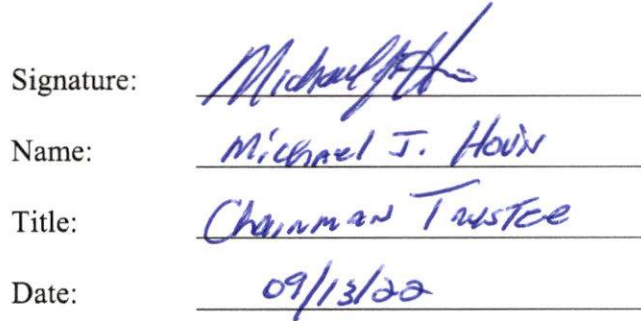 Signature: Michael J. Ho
Name: Michael J. Hovis
Title: Chairman Trustee
Date: 09/13/22